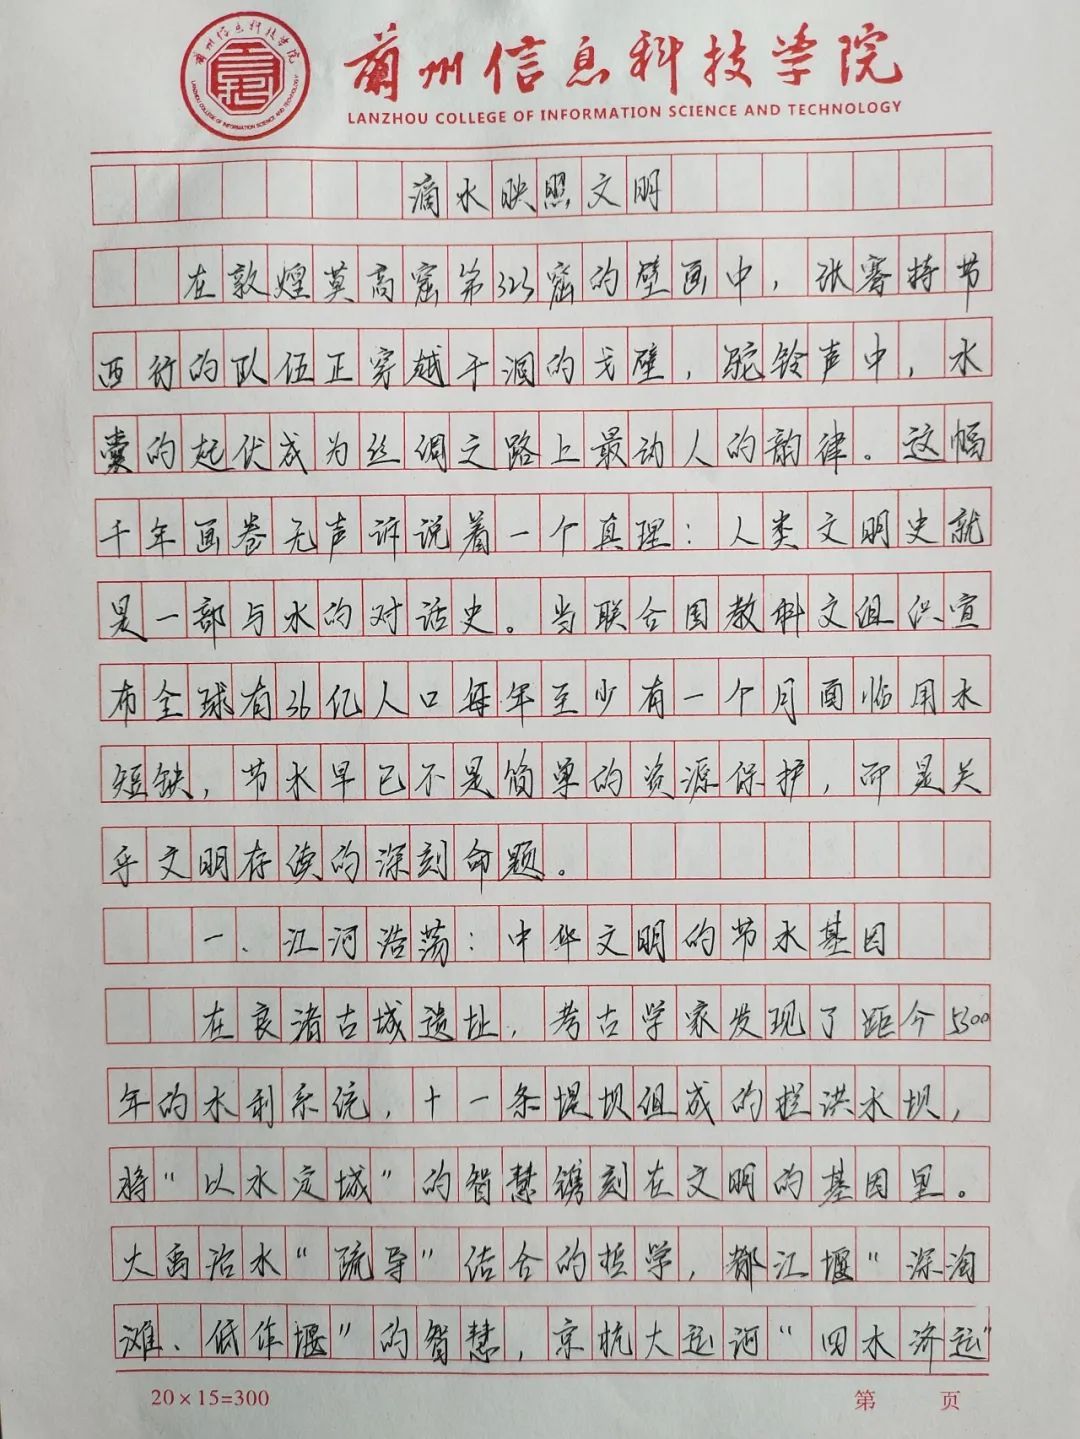 兰州信息科技学院
LANZHOU COLLEGE OF INFORMATION SCIENCE AND TECHNOLOGY
兰州信息科技学院
LANZHOU COLLEGE OF INFORMATION SCIENCE AND TECHNOLOGY
滴水映照文明
在敦煌莫高窟第323窟的壁画中，张骞持节
西行的队伍正穿越干涸的戈壁，驼铃声中，水
囊的起伏成为丝绸之路上最动人的韵律。这幅
千年画卷无声诉说着一个真理：人类文明史就
是一部与水的对话史。当联合国教科文组织宣
布全球有36亿人口每年至少有一个月面临用水
短缺，节水早已不是简单的资源保护，而是关
乎文明存续的深刻命题。
一、江河浩荡：中华文明的节水基因
在良渚古城遗址，考古学家发现了距今5300
年的水利系统，十一条堤坝组成的拦洪水坝，
将“以水定城”的智慧镌刻在文明的基因里。
大禹治水“疏导”结合的哲学，都江堰“深淘
滩、低作堰”的智慧，京杭大运河“四水济运”
20×15=300
第 页